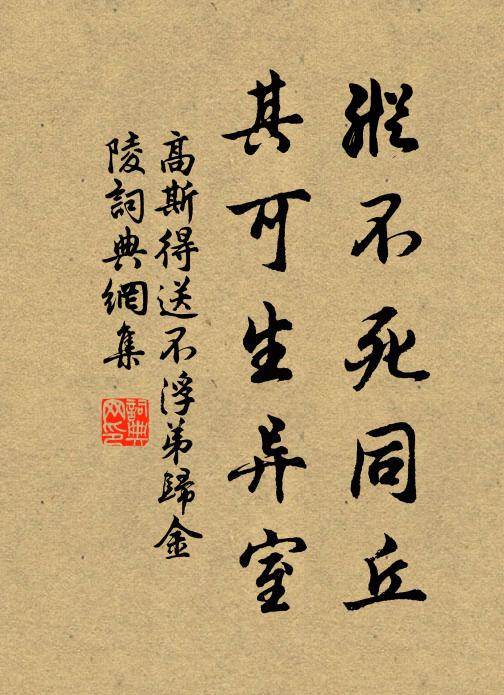 縱不死同丘
其可生异室
高斯得送不浮弟歸金
陵詞典網集
詞典
网印